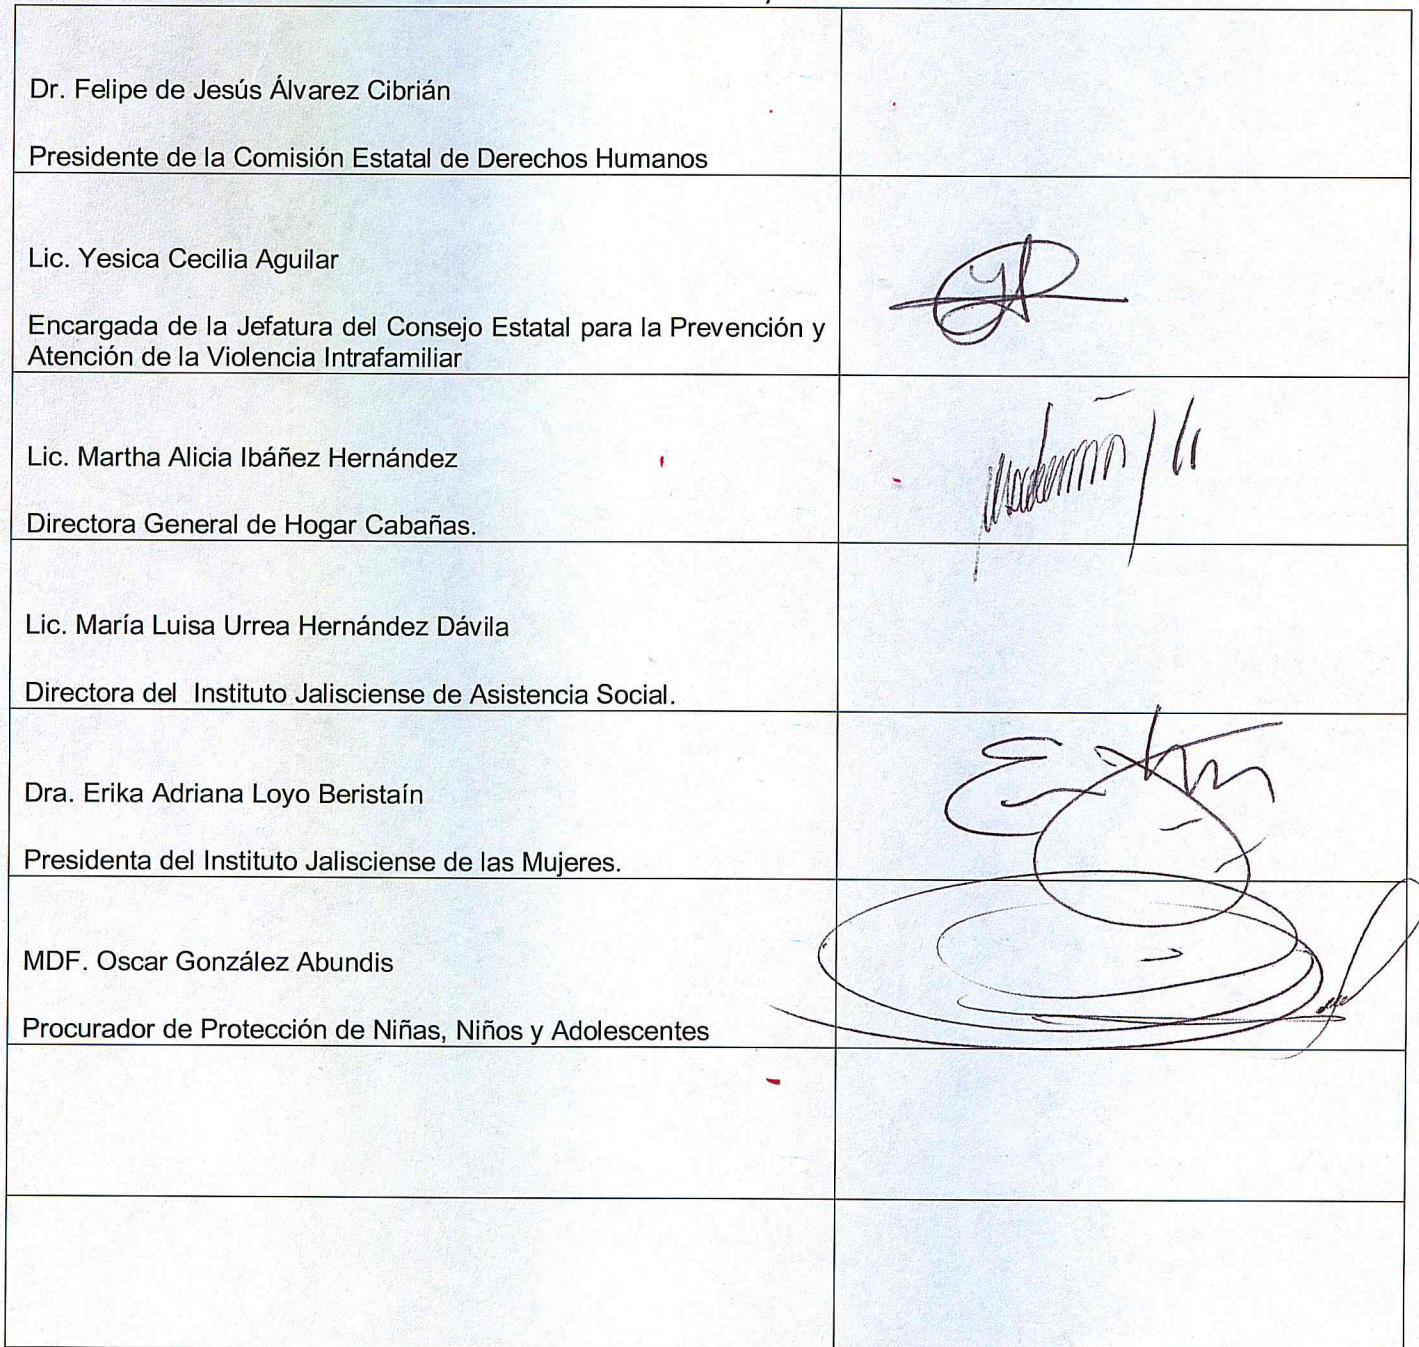 Dr. Felipe de Jesús Álvarez Cibrián
Presidente de la Comisión Estatal de Derechos Humanos
Lic. Yesica Cecilia Aguilar
Encargada de la Jefatura del Consejo Estatal para la Prevención y
Atención de la Violencia Intrafamiliar
Lic. Martha Alicia Ibáñez Hernández
Directora General de Hogar Cabañas.
Lic. María Luisa Urrea Hernández Dávila
Directora del Instituto Jalisciense de Asistencia Social.
Dra. Erika Adriana Loyo Beristaín
Presidenta del Instituto Jalisciense de las Mujeres.
MDF. Oscar González Abundis
Procurador de Protección de Niñas, Niños y Adolescentes